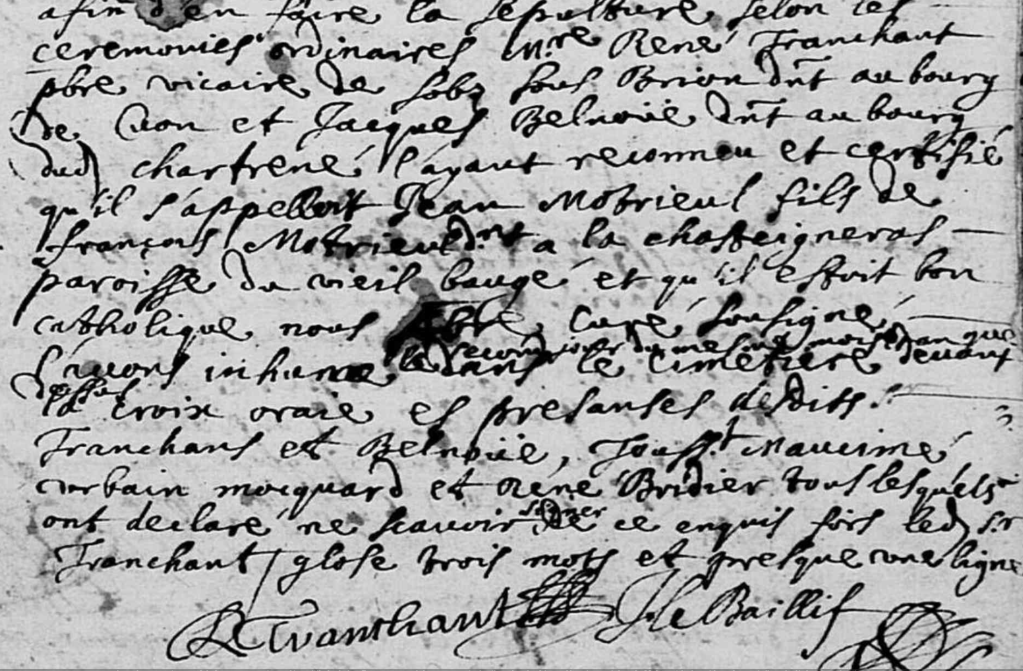 afin d'en faire la sepulture selon les
ceremonies ordinaires Mre René Tranchant
pbre vicaire de sous Brion dmt au bourg
de Cuon et Jacques Belnoüe dmt au bourg
dud chartrené l'ayant reconneu et certifié
qu'il s'appelloit Jean Motrieul fils de
françois Motrieul dmt a la chasteigneras
paroisse du vieil baugé et qu'il estoit bon
catholique nous pbre Curé sousigné
le second jour du mesme mois et an que
l'avons inhumé dans le cimetiere devant
dessus
la croix oraie es presanses desdits
Tranchans et Belnoüe, Jouss.t Maucimé
urbain mocquard et René Bridier tous lesquels
signer
ont declaré ne scavoir de ce enquis fors led sr
Tranchant / glose trois mots et presque une ligne
R Tranchant J Le Baillif